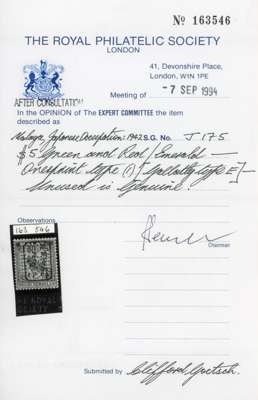 No 163546
THE ROYAL PHILATELIC SOCIETY
LONDON
41, Devonshire Place,
London, W1N 1PE
AFTER CONSULTATION
Meeting of - 7 SEP 1994
In the OPINION of THE EXPERT COMMITTEE the item
described as
Malaya, Japanese Occupation: 1942 S.G. No. J175
$5 Green and Red/Emerald —
Overprint type (1) / [specialty type E] —
Unused is Genuine.
Observations
163 546
Chairman
THE ROYAL
SOCIETY
Submitted by Clifford Gretsch.